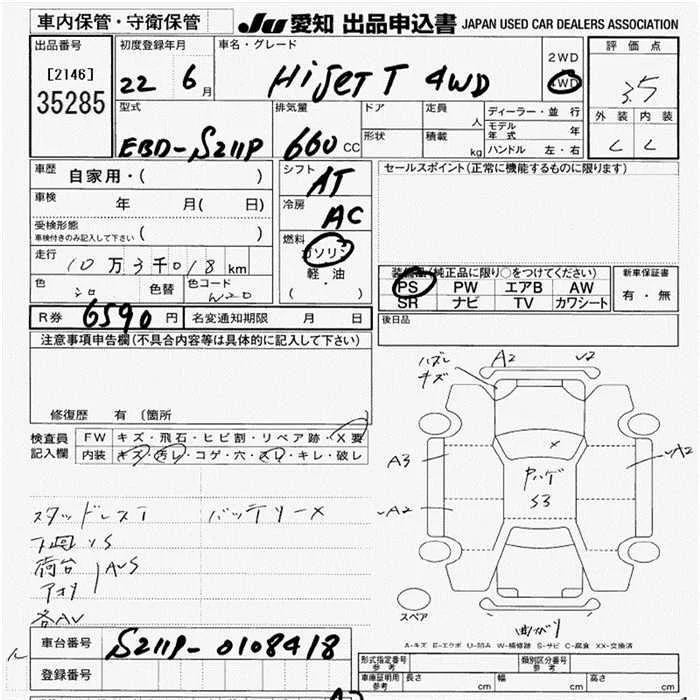 車内保管・守衛保管
JU 愛知 出品申込書 JAPAN USED CAR DEALERS ASSOCIATION
出品番号
[2146]
35285
初度登録年月
22 6月
車名・グレード
HiJET T 4WD
2WD
4WD
評価点
3.5
外装 内装
C C
型式
EBD-S211P
排気量
660 CC
ドア
形状
定員 人
積載 kg
ディーラー・並行
モデル年式 年
ハンドル 左・右
車歴
自家用・( )
車検 年 月( 日)
受検形態
車検付きのみ記入して下さい ( )
走行
10万3千018km
色 シロ 色替
色コード W20
シフト
AT
冷房
AC
燃料
ガソリン
軽油
( ・ )
セールスポイント(正常に機能するものに限ります)
装備品(純正品に限り○をつけてください)
PS PW エアB AW
SR ナビ TV カワシート
新車保証書
有・無
R券 6590円
名変通知期限 月 日
後日品
注意事項申告欄(不具合内容等は具体的に記入して下さい)
修復歴 有 〔箇所
検査員記入欄
FW キズ・飛石・ヒビ割・リペア跡・X要
内装 キズ・汚レ・コゲ・穴・スレ・キレ・破レ
スタッドレスT バッテリーX
下回りS
荷台
アオリ AUS
各AU
ハズレ
キズ
A2
U2
A3
A2
S3
スペア
曲ガリ
A-キズ E-エクボ U-凹A W-補修跡 S-サビ C-腐食 XX-交換済
車台番号 S211P-0108418
登録番号
形式指定番号 参考
類別区分番号 参考
車庫証明用 参考 長さ cm 幅 cm 高さ cm